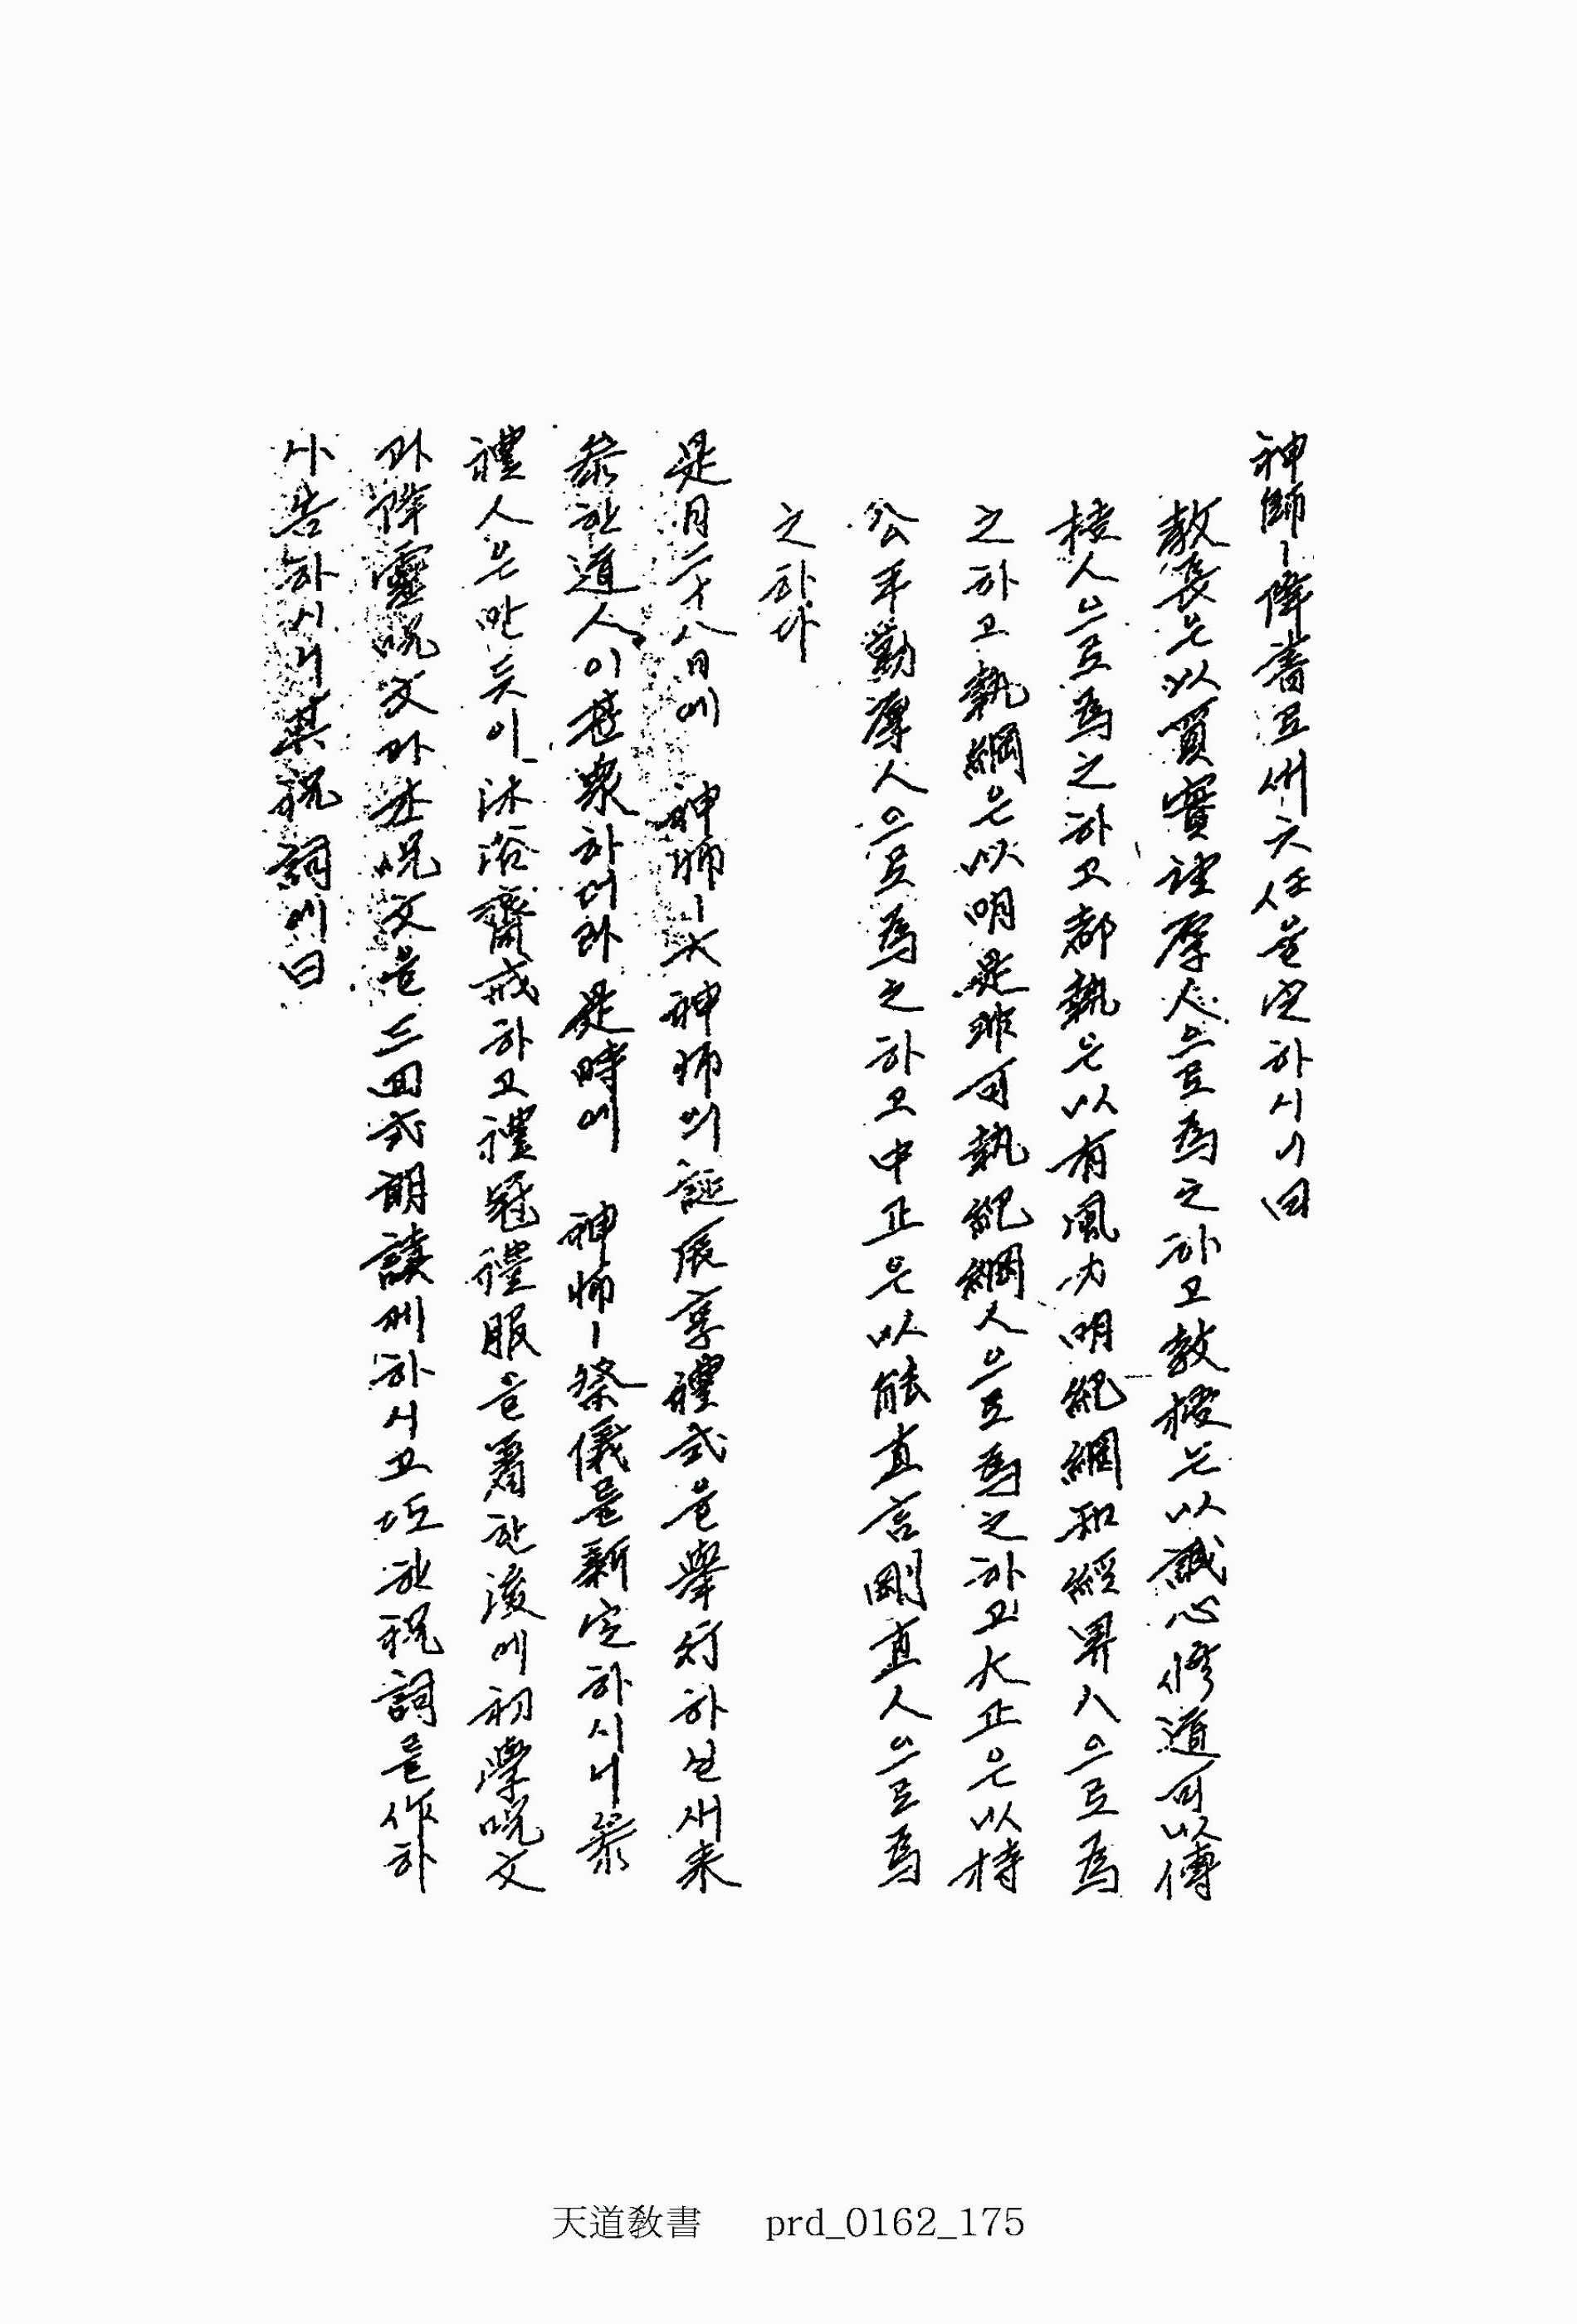 神師ㅣ降書로써六任을定하시니曰
敎長은以質實望厚人으로爲之하고敎授은以誠心修道可以傳
授人으로爲之하고都執은以有風力明紀綱和經界人으로爲
之하고執綱은以明是非可執紀綱人으로爲之하고大正은以持
公平勤厚人으로爲之하고中正은以能直言剛直人으로爲
之하다
是月二十八日에 神師ㅣ大神師의誕辰享禮式을擧行하실새來
叅한道人이甚衆하더라是時에 神師ㅣ祭儀를新定하시니叅
禮人은반듯이沐浴齋戒하고禮冠禮服을著한後에初學呪文
과降靈呪文과本呪文을三回式朗讀케하시고또한祝詞를作하
사告하시니其祝詞에曰
天道敎書 prd_0162_175